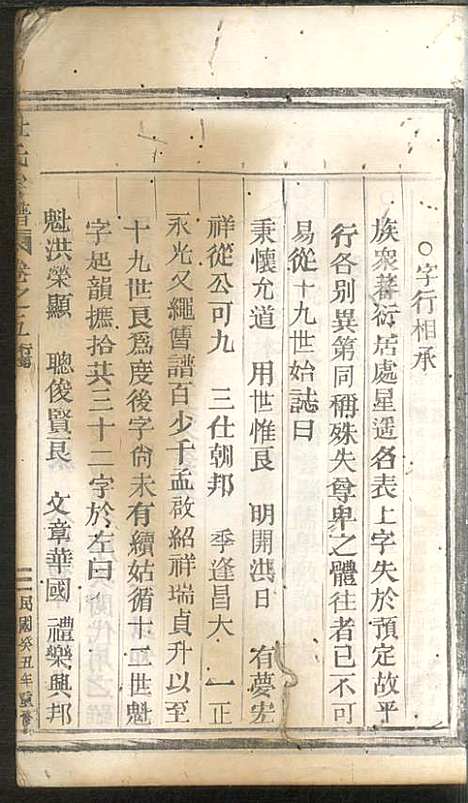 ○字行相承
族衆蕃衍居處星遥名表上字失於預定故平
行各別異第同稱殊失尊卑之體往者已不可
易從十九世始誌曰
秉懷允道　用世惟良　明開洪日　有夢宏
祥從公可九　三仕朝邦　季逢昌大　一正
永光又繩舊譜百少千孟啟紹祥瑞貞升以至
十九世良爲度後字尙未有續姑循十二世魁
字起韻摭拾共三十二字於左曰
魁洪榮顯　聰俊賢良　文章華國　禮樂興邦
氏 譜 卷之五 行
二 民國癸丑年重